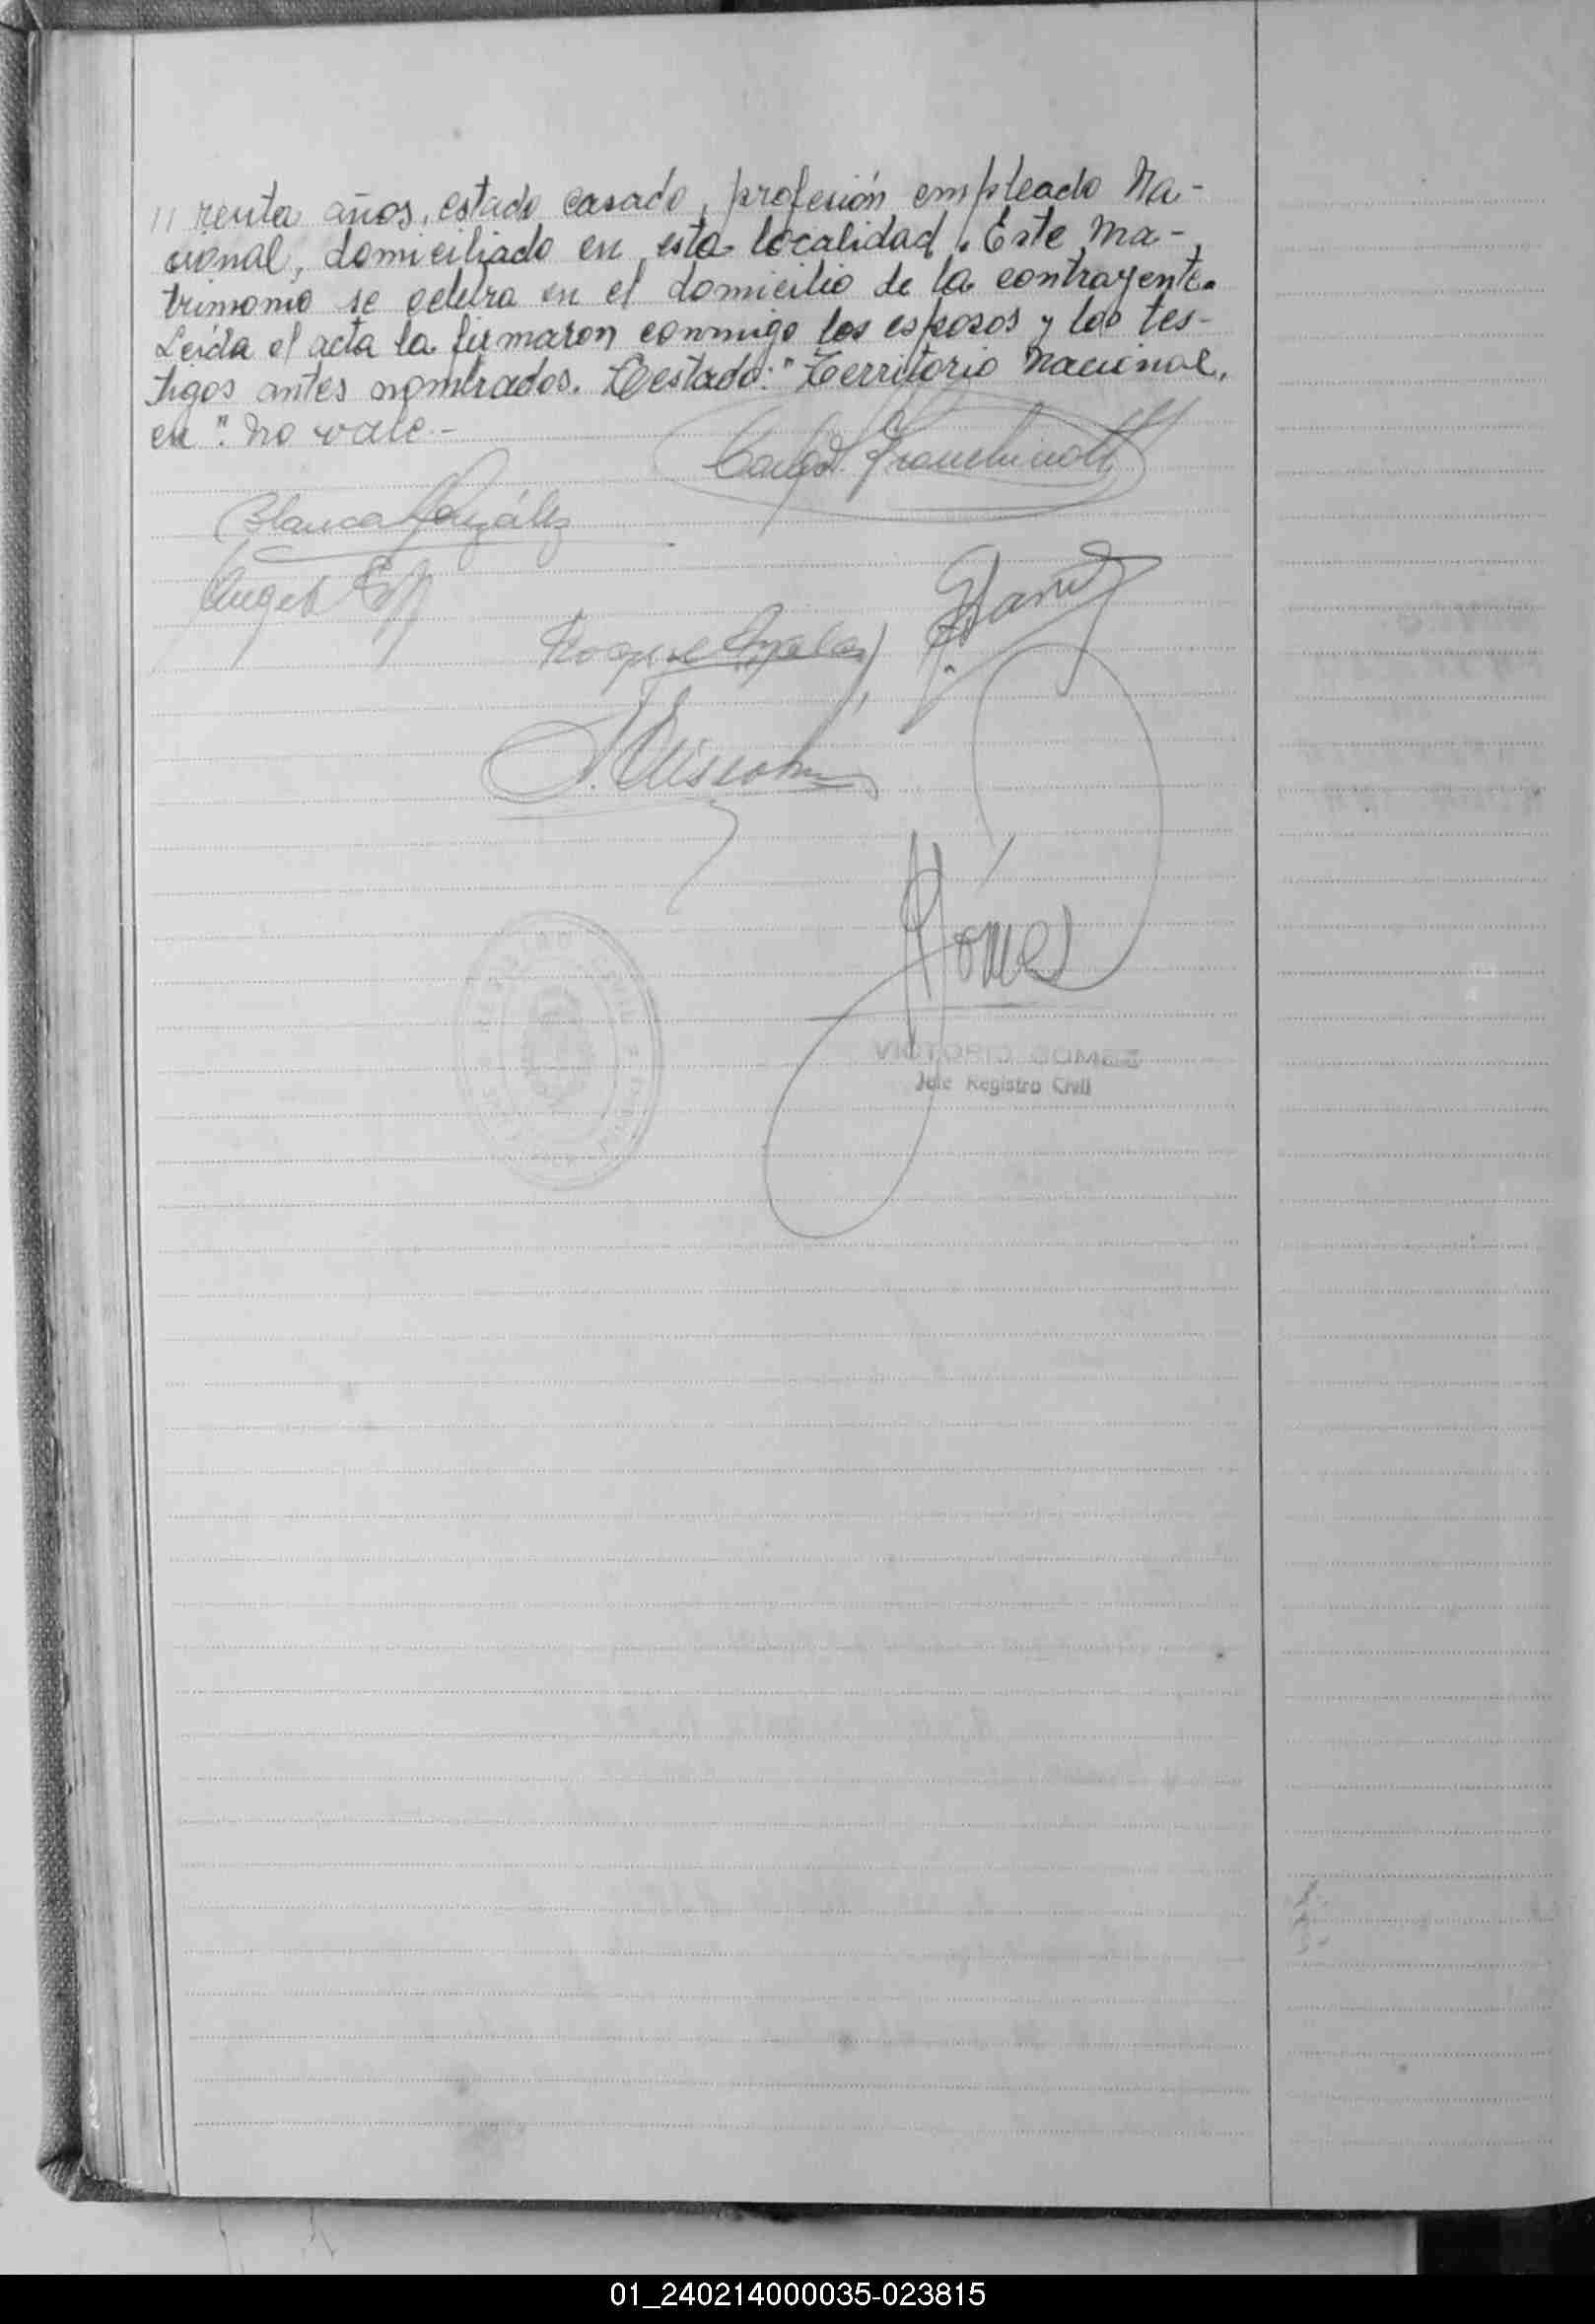 // renta años, estado casado, profesión empleado Na-
cional, domiciliado en esta localidad. Este ma-
trimonio se celebra en el domicilio de la contrayente.
Leída el acta la firmaron conmigo los esposos y los tes-
tigos antes nombrados. Testado: "Territorio Nacional,
en". No vale.-
Blanca González
Angel
Roque Ayala
Gómez
VICTORIO GOMEZ
Jefe Registro Civil
REGISTRO CIVIL
01_240214000035-023815